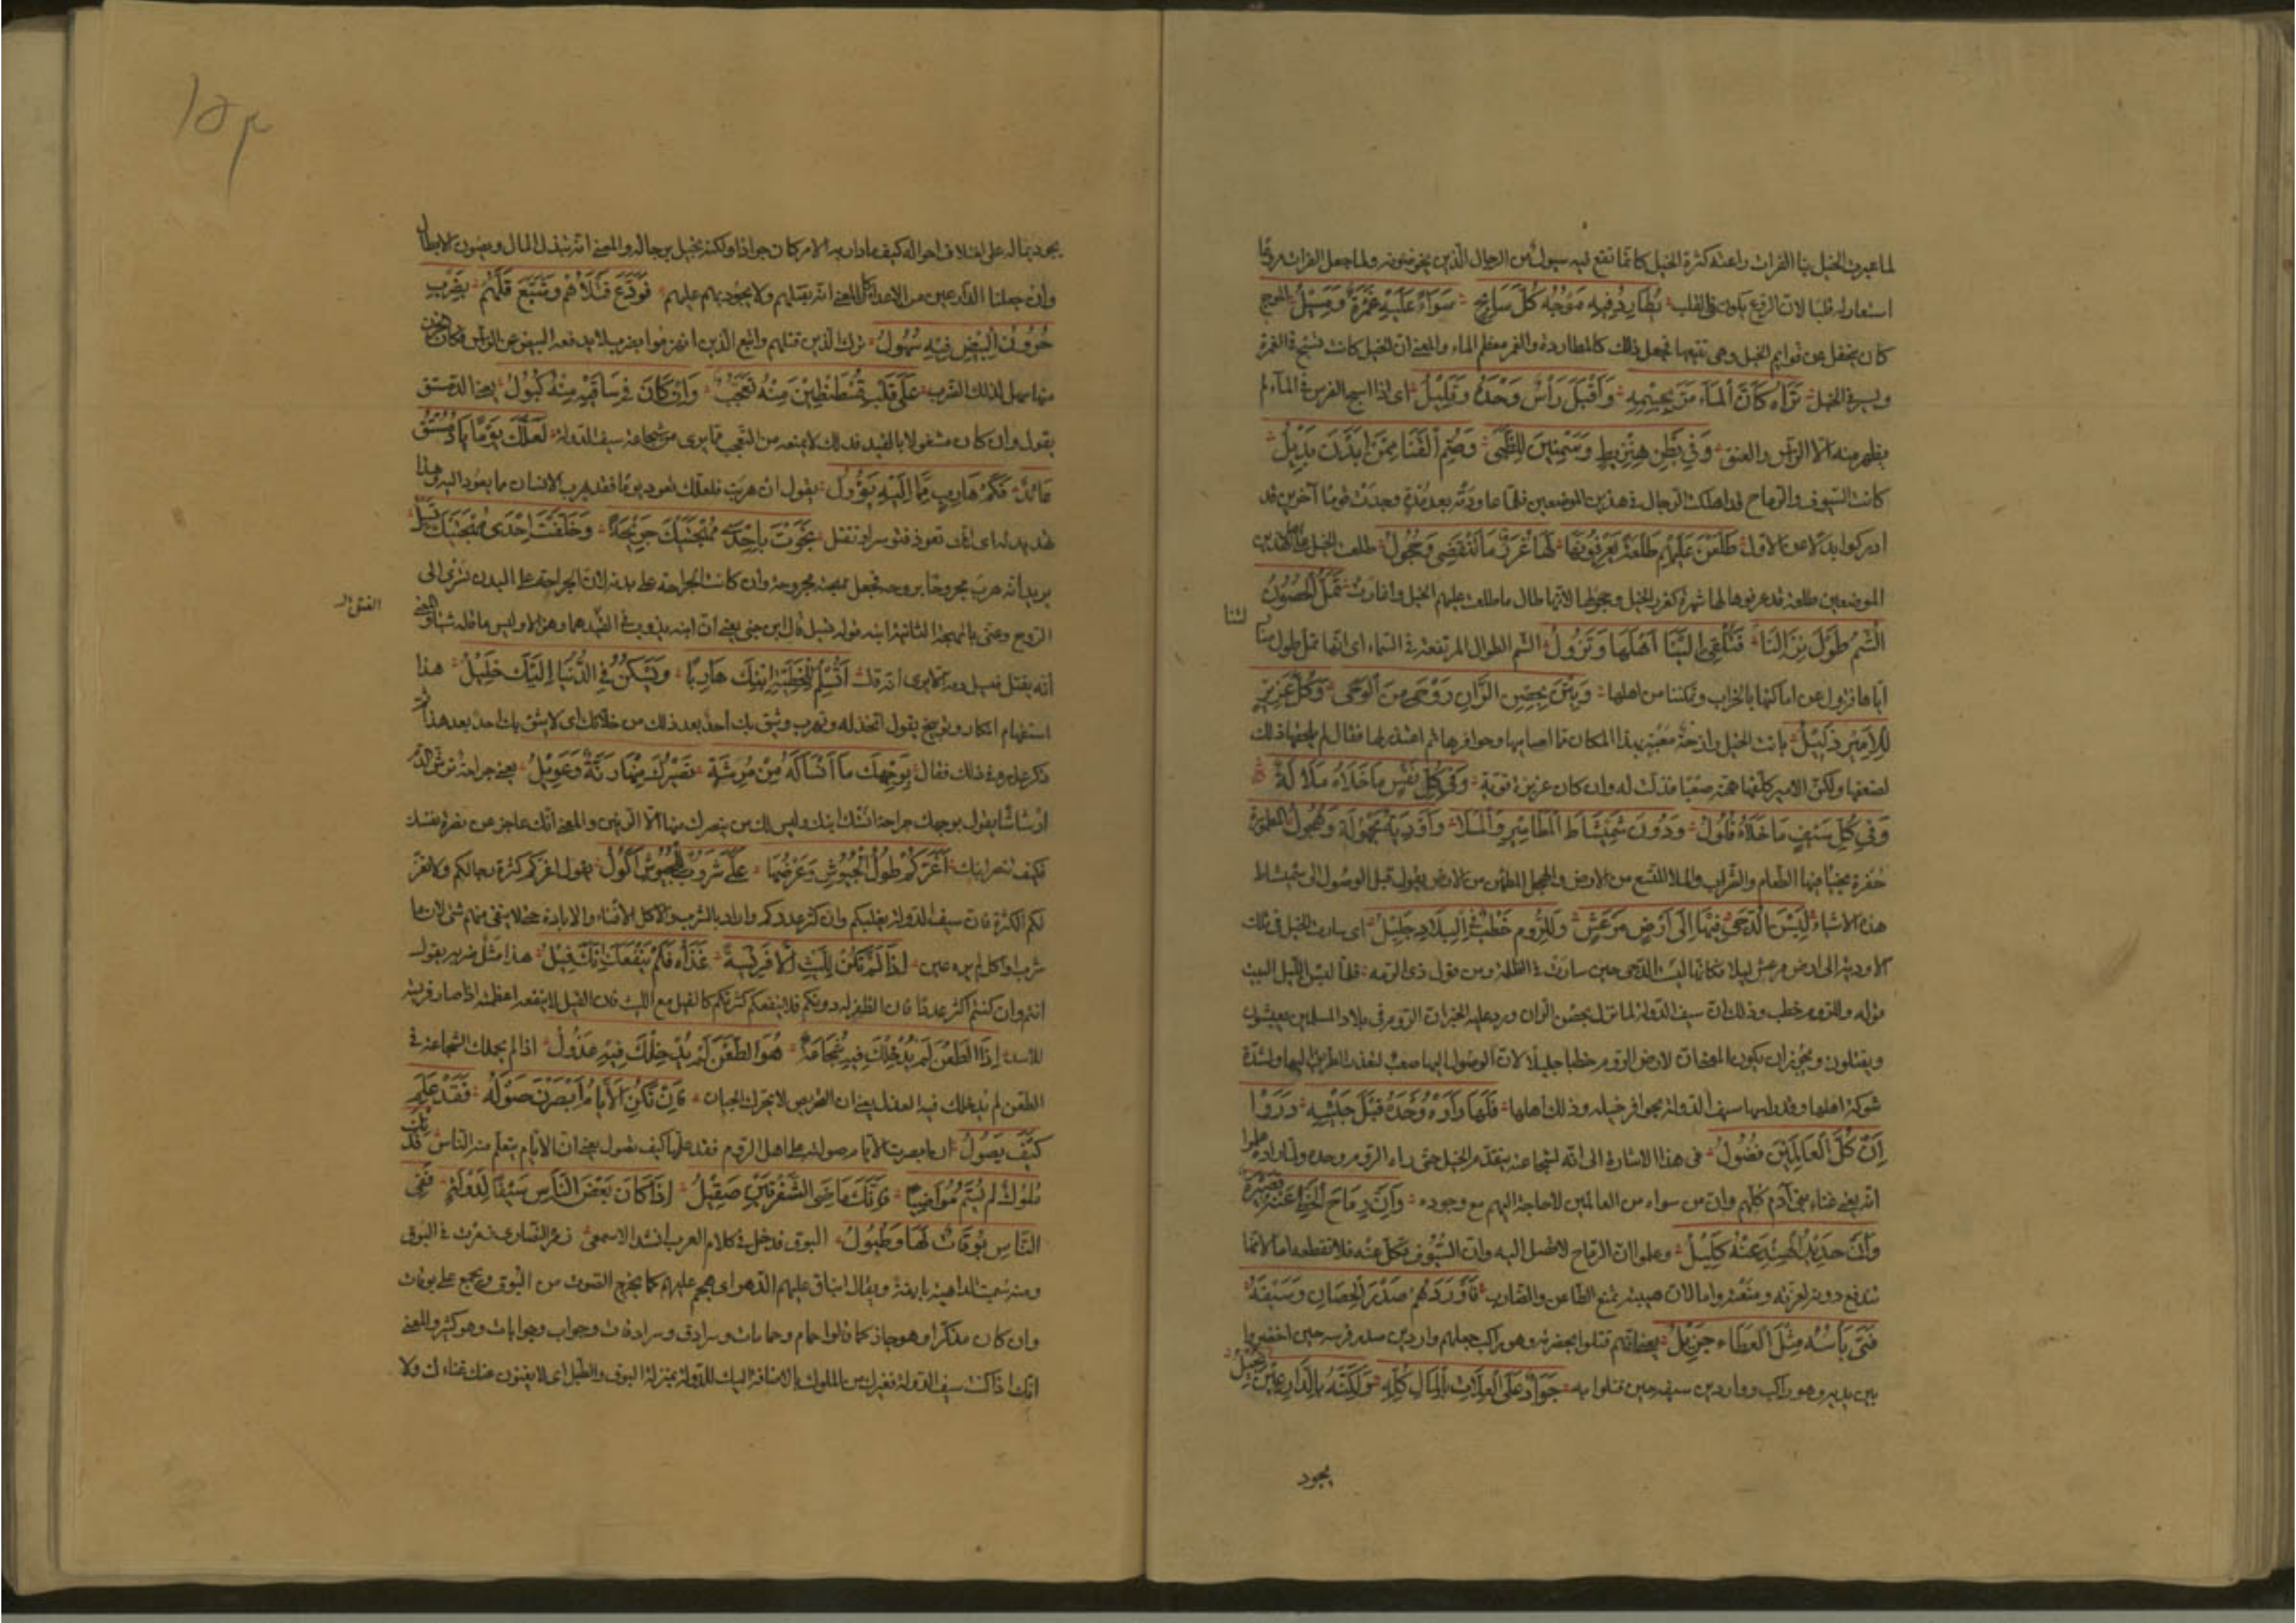 لما عبرت الخيل بنا الفرات راعته كثرة الخيل كانما تقع فيه سيول من الرجال الذين يخوضونه ولما جعل الفرات مروعا
استعار له قلبا لان الروع يكون في القلب يُطَارِدُ فِيهِ مَوْجَهُ كُلُّ سَابِحٍ سَوَاءٌ عَلَيْهِ غَمْرَةٌ وَمَسِيلُ الموج
كان يجفل عن قوايم الخيل وهي تتبعها فجعل ذلك كالمطاردة والغمر معظم الماء والمعنى ان الخيل كانت تسبح في الغمرة
وتسير في المسيل تَرَاهُ كَأَنَّ الْمَاءَ مَرَّ بِجِسْمِهِ وَأَقْبَلَ رَأْسٌ وَحْدَهُ وَتَلِيلُ اى اذا سبح الفرس في الماء لم
يظهر منه الا الراس والعنق وَفِي بَطْنِ هِنْزِيطٍ وَسِمْنِينَ لِلظُّبَى وَصُمِّ الْقَنَا مِمَّنْ أَبَدْنَ بَدِيلُ
كانت السيوف والرماح قد اهلكت الرجال في هذين الموضعين فلما عاودته بعد مدة وجدت قوما آخرين قد
ادركوا بدلا عن الاول طَلَعْنَ عَلَيْهِمْ طَلْعَةً يَعْرِفُونَهَا لَهَا غُرَرٌ مَا تَنْقَضِي وَحُجُولُ طلعت الخيل على اهل هذين
الموضعين طلعة قد عرفوها لها شهرة كغرر الخيل وحجولها لانها طال ما طلعت عليهم الخيل واغارت تَمَلُّ الْحُصُونُ
الشُّمُّ طُولَ نِزَالِنَا فَتُلْقِي إِلَيْنَا أَهْلَهَا وَتَزُولُ الشم الطوال المرتفعة في السماء اى انها تمل طول منا
لتنا
اياها فتزول عن اماكنها بالخراب وتمكننا من اهلها وَبِتْنَ بِحِصْنِ الرَّانِ رَزْحَى مِنَ الْوَجَى وَكُلُّ عَزِيزٍ
لِلْأَمِيرِ ذَلِيلُ باتت الخيل رازحة معيية بهذا المكان مما اصابها وحوافرها ثم اعتذر لها فقال لم يلحقها ذلك
لضعفها ولكن الامير كلفها همة صعبا فذلت له وان كان عزيزة قوية وَفِي كُلِّ نَفْسٍ مَا خَلَاهُ مَلَالَةٌ
وَفِي كُلِّ سَيْفٍ مَا خَلَاهُ فُلُولُ وَدُونَ سُمَيْسَاطَ الْمَطَامِيرُ وَالْمَلَا وَأَوْدِيَةٌ مَجْهُولَةٌ وَهُجُولُ المطمورة
حفرة يخبأ فيها الطعام والشراب والملا المتسع من الارض والهجل المطمئن من الارض يقول قبل الوصول الى سميساط
هذه الاشياء لَبِسْنَ الدُّجَى فِيهَا إِلَى أَرْضِ مَرْعَشٍ وَلِلرُّومِ خَطْبٌ فِي الْبِلَادِ جَلِيلُ اى سارت الخيل في تلك
الاودية الى ارض مرعش ليلا فكانها لبست الدجى حين سارت في الظلمة ومن قول ذى الرمه فلما لبسن الليل البيت
قوله وللروم خطب وذلك ان سيف الدولة لما نزل بحصن الران ورد عليه الخبر ان الروم في بلاد المسلمين يعيثون
ويقتلون ويجوز ان يكون المعنى ان لارض الروم خطبا جليلا لان الوصول اليها صعب لتعذر الطريق اليها ولشدة
شوكة اهلها وقد داسها سيف الدولة بحوافر خيله وذلك اهلها فَلَمَّا رَأَوْهُ وَحْدَهُ قَبْلَ جَيْشِهِ دَرَوْا
أَنَّ كُلَّ الْعَالَمِينَ فُضُولُ في هذا الاشارة الى انه لشجاعته يتقدم الخيل حتى رآه الروم وحده ولما رأوه علموا
انه يغنى غناء بني آدم كلهم وان من سواه من العالمين لا حاجة اليهم مع وجوده وَأَنَّ رِمَاحَ الْخَطِّ عَنْهُ قَصِيرَةٌ
وَأَنَّ حَدِيدَ الْهِنْدِ عَنْهُ كَلِيلُ وعلموا ان الرماح لا تصل اليه وان السيوف تكل عنه فلا تقطعه اما لانها
تندفع دونه لعزته ومنعته واما لان هيبته تمنع الطاعن والضارب فَأَوْرَدَهُمْ صَدْرَ الْحِصَانِ وَسَيْفَهُ
فَتًى بَأْسُهُ مِثْلُ الْعَطَاءِ جَزِيلُ يعنى انهم قتلوا بحضرته وهو راكب جعلهم واردين صدر فرسه حين احضروا
بين يديه وهو راكب وواردين سيفه حين قتلوا به جَوَادٌ عَلَى الْعِلَّاتِ بِالْمَالِ كُلِّهِ وَلَكِنَّهُ بِالدَّارِعِينَ بَخِيلُ
يجود
يجود بماله على اختلاف احواله كيف ما دار به الامر كان جوادا ولكنه بخيل برجاله والمعنى انه يبذل المال ويصون الابطال
وان جعلنا الدارعين من الاعداء كان المعنى انه يقتلهم ولا يجود بهم عليهم فَوَدَّعَ قَتْلَاهُمْ وَشَيَّعَ فَلَّهُمْ بِضَرْبٍ
حُزُونُ الْبَيْضِ فِيهِ سُهُولُ ترك الذين قتلهم واتبع الذين انهزموا بضرب لا يدفعه البيض عن الراس فكان الحزن
منها سهل لذلك الضرب عَلَى قَلْبِ قُسْطَنْطِينَ مِنْهُ تَعَجُّبٌ وَإِنْ كَانَ فِي سَاقَيْهِ مِنْهُ كُبُولُ يعنى ابن الدمستق
يقول وان كان مشغولا بالقيد فذلك لا يمنعه من التعجب مما يرى من شجاعة سيف الدولة لَعَلَّكَ يَوْمًا يَا دُمُسْتُقُ
عَائِدٌ فَكَمْ هَارِبٍ مِمَّا إِلَيْهِ يَؤُولُ يقول ان هربت فلعلك تعود يوما فقد يهرب الانسان مما يعود اليه وهذا
تهديد له اى انك تعود فتوسر او تقتل نَجَوْتَ بِإِحْدَى مُهْجَتَيْكَ جَرِيحَةً وَخَلَّفْتَ إِحْدَى مُهْجَتَيْكَ تَسِيلُ
يريد انه هرب مجروحا بروحه فجعل مهجته مجروحة وان كانت الجراحة على بدنه لان الجراحة على البدن تسرى الى
الروح وعنى بالمهجة الثانية ابنه قوله تسيل قال ابن جنى يعنى ان ابنه يذوب في القيد هما وهزالا وليس ما قاله شيئا والمعنى
انه يقتل فيسيل دمه الا يرى انه قال أَتُسْلِمُ لِلْخَطِّيَّةِ ابْنَكَ هَارِبًا وَيَسْكُنُ فِي الدُّنْيَا إِلَيْكَ خَلِيلُ هذا
استفهام انكار وتوبيخ يقول اتخذله وتهرب ويثق بك احد بعد ذلك من خلانك اى لا يثق بك احد بعد هذا ثم
ذكر عذره في ذلك فقال بِوَجْهِكَ مَا أَنْسَاكَهُ مِنْ مُرِشَّةٍ نَصِيرُكَ مِنْهَا رَنَّةٌ وَعَوِيلُ يعنى جراحة ترش الدم
ارشاشا يقول بوجهك جراحة انستك ابنك وليس لك من ينصرك منها الا الرنين والمعنى انك عاجز عن نصرة نفسك
فكيف تنصر ابنك أَغَرَّكُمُ طُولُ الْجُيُوشِ وَعَرْضُهَا عَلِيٌّ شَرُوبٌ لِلْجُيُوشِ أَكُولُ يقول اغركم كثرة رجالكم ولا تغر
لكم الكثرة فان سيف الدولة يغلبكم وان كثر عددكم واراد بالشرب والاكل الافناء والابادة حتى لا يبقى منهم شىء لان ما
شرب واكل لم يبق له عين إِذَا لَمْ تَكُنْ لِلَّيْثِ إِلَّا فَرِيسَةً غَذَاهُ فَلَمْ يَنْفَعْكَ أَنَّكَ فِيلُ هذا مثل ضربه يقول
انتم وان كنتم اكثر عددا فان الظفر له دونكم فلا ينفعكم كثرتكم كالفيل مع الليث فان الفيل لا ينفعه اعظمته اذا صار فريسة
للاسد إِذَا الطَّعْنُ لَمْ يُدْخِلْكَ فِيهِ شَجَاعَةٌ هُوَ الطَّعْنُ لَمْ يُدْخِلْكَ فِيهِ عَذُولُ اذا لم يحملك الشجاعة في
الطعن لم يدخلك فيه العذل يعنى ان التحريض لا يحرك الجبان فَإِنْ تَكُنِ الْأَيَّامُ أَبْصَرْنَ صَوْلَهُ فَقَدْ عَلِمَ
كَيْفَ يَصُولُ ان ابصرت الايام صولته على اهل الروم فقد علمها كيف تصول يعنى ان الايام يتعلم منه الناس فَدَتْكَ
مُلُوكٌ لَمْ تُسَمَّ مَوَاضِيًا فَإِنَّكَ مَاضِي الشَّفْرَتَيْنِ صَقِيلُ إِذَا كَانَ بَعْضُ النَّاسِ سَيْفًا لِدَوْلَةٍ فَفِي
النَّاسِ بُوقَاتٌ لَهَا وَطُبُولُ البوق قد دخل في كلام العرب انشد الاصمعى زمر النصارى زمرت في البوق
ومنه سميت الداهية بايقة ويقال انباق عليهم الدهر اى هجم عليهم كما يخرج الصوت من البوق ويجمع على بوقات
وان كان مذكرا وهو جايز كما قالوا حمام وحمامات وسرادق وسرادقات وجواب وجوابات وهو كثير والمعنى
انك اذا كنت سيف الدولة فغيرك من الملوك بالاضافة اليك للدولة بمنزلة البوق والطبل اى لا يغنون عنك غناءك ولا